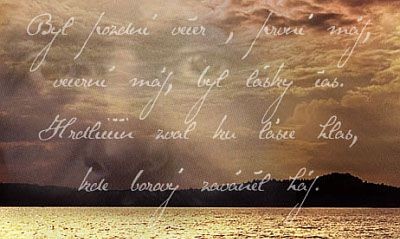 Byl pozdní večer , první máj,
večerní máj, byl lásky čas.
Hrdliččin zval ku lásce hlas,
kde borový zaváněl háj.